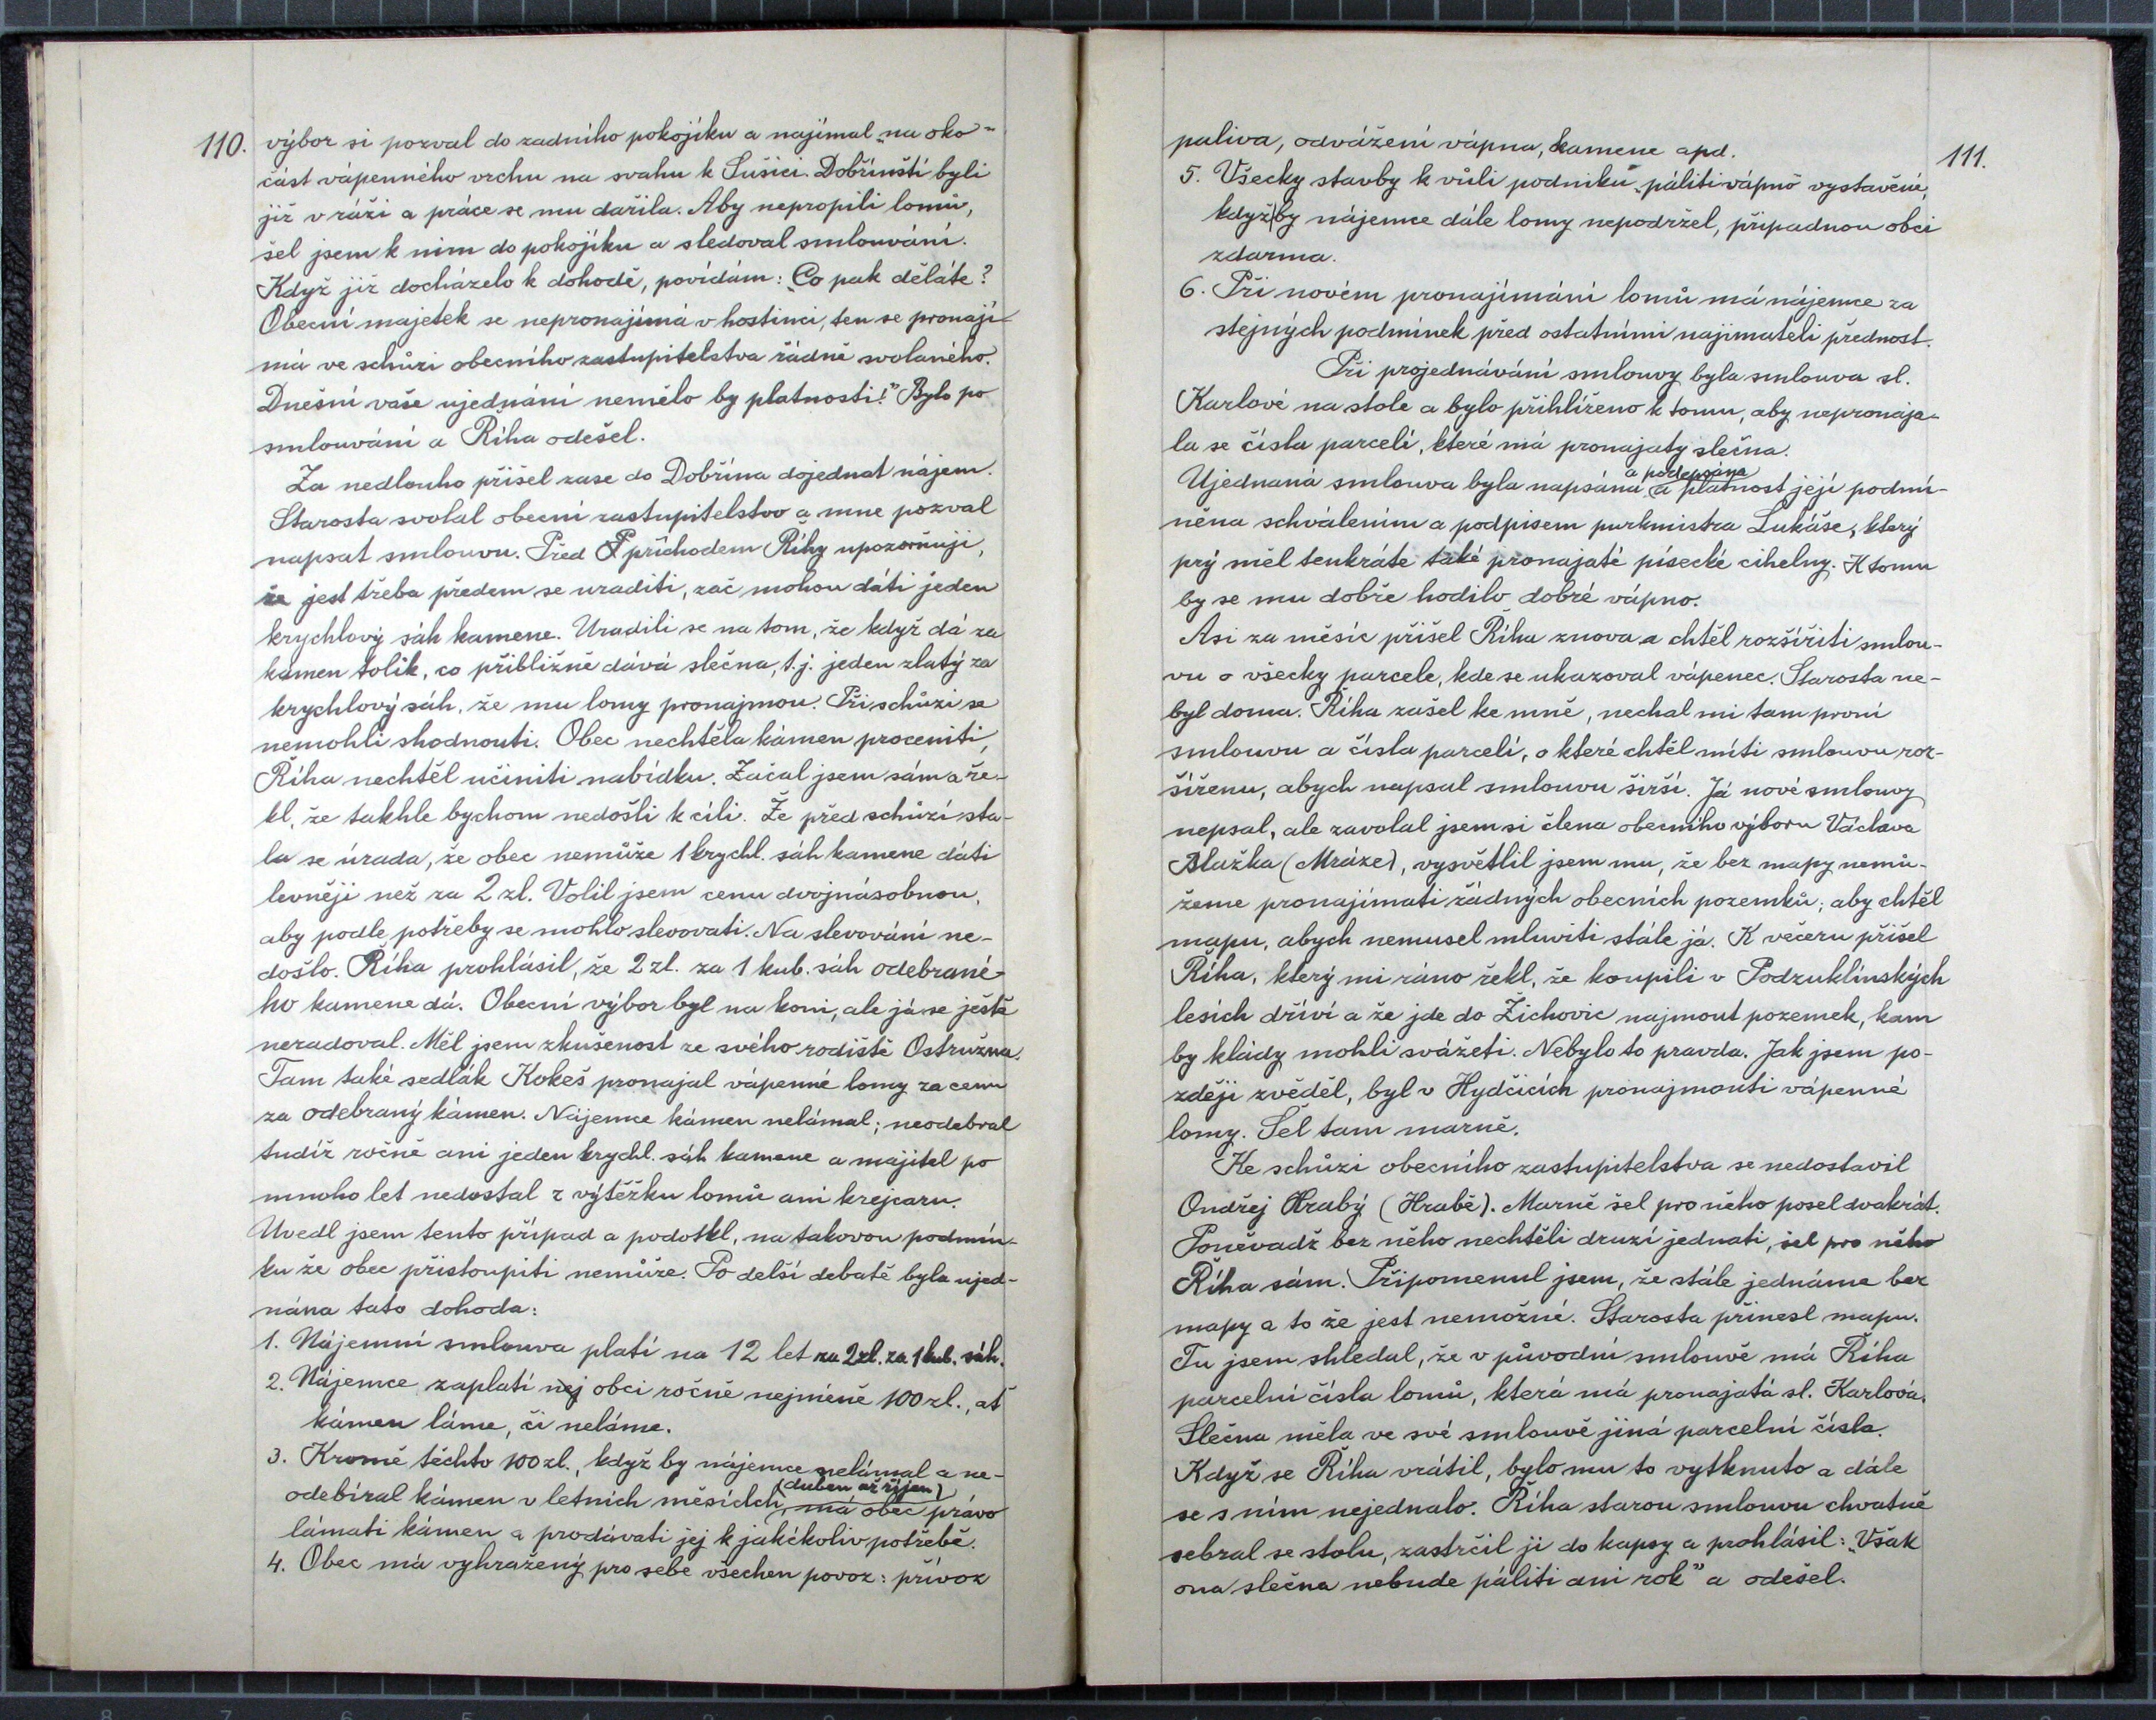 110.
výbor si pozval do zadního pokojíku a najímal „na oko"
část vápenného vrchu na svahu k Sušici. Dobřínští byli
již v ráži a práce se mu dařila. Aby nepropili lomů,
šel jsem k nim do pokojíku a sledoval smlouvání.
Když již docházelo k dohodě, povídám: „Co pak děláte?
Obecní majetek se nepronajímá v hostinci, ten se pronají-
má ve schůzi obecního zastupitelstva řádně svolaného.
Dnešní vaše ujednání nemělo by platnosti!" Bylo po
smlouvání a Říha odešel.
Za nedlouho přišel zase do Dobřína dojednat nájem.
Starosta svolal obecní zastupitelstvo a mne pozval
napsat smlouvu. Před příchodem Říhy upozorňuji,
že jest třeba předem se uraditi, zač mohou dáti jeden
krychlový sáh kamene. Uradili se na tom, že když dá za
kámen tolik, co přibližně dává slečna, t.j. jeden zlatý za
krychlový sáh, že mu lomy pronajmou. Při schůzi se
nemohli shodnouti. Obec nechtěla kámen proceniti,
Říha nechtěl učiniti nabídku. Začal jsem sám a ře-
kl, že takhle bychom nedošli k cíli. Že před schůzí sta-
la se úrada, že obec nemůže 1 krychl. sáh kamene dáti
levněji než za 2 zl. Volil jsem cenu dvojnásobnou,
aby podle potřeby se mohlo slevovati. Na slevování ne-
došlo. Říha prohlásil, že 2 zl. za 1 kub. sáh odebrané-
ho kamene dá. Obecní výbor byl na koni, ale já se ještě
neradoval. Měl jsem zkušenost ze svého rodiště Ostružna.
Tam také sedlák Kokeš pronajal vápenné lomy za cenu
za odebraný kámen. Nájemce kámen nelámal; neodebral
tudíž ročně ani jeden krychl. sáh kamene a majitel po
mnoho let nedostal z výtěžku lomů ani krejcaru.
Uvedl jsem tento případ a podotkl, na takovou podmín-
ku že obec přistoupiti nemůže. Po delší debatě byla ujed-
nána tato dohoda:
1. Nájemní smlouva platí na 12 let za 2 zl. za 1 kub. sáh.
2. Nájemce zaplatí nej obci ročně nejméně 100 zl., ať
kámen láme, či neláme.
3. Kromě těchto 100 zl., když by nájemce nelámal a ne-
(duben až říjen)
odebíral kámen v letních měsících, má obec právo
lámati kámen a prodávati jej k jakékoliv potřebě.
4. Obec má vyhražený pro sebe všechen povoz: přívoz
111.
paliva, odvážení vápna, kamene apd.
5. Všecky stavby k vůli podniku „páliti vápno" vystavěné,
když by nájemce dále lomy nepodržel, připadnou obci
zdarma.
6. Při novém pronajímání lomů má nájemce za
stejných podmínek před ostatními najimateli přednost.
Při projednávání smlouvy byla smlouva sl.
Karlové na stole a bylo přihlíženo k tomu, aby nepronaja-
la se čísla parcelí, které má pronajaty slečna.
a podepsána
Ujednaná smlouva byla napsána a platnost její podmí-
něna schválením a podpisem purkmistra Lukáše, který
prý měl tenkráte také pronajaté písecké cihelny. K tomu
by se mu dobře hodilo dobré vápno.
Asi za měsíc přišel Říha znova a chtěl rozšířiti smlou-
vu o všecky parcele, kde se ukazoval vápenec. Starosta ne-
byl doma. Říha zašel ke mně, nechal mi tam první
smlouvu a čísla parcelí, o které chtěl míti smlouvu roz-
šířenu, abych napsal smlouvu širší. Já nové smlouvy
nepsal, ale zavolal jsem si člena obecního výboru Václava
Blažka (Mráze), vysvětlil jsem mu, že bez mapy nemů-
žeme pronajímati žádných obecních pozemků; aby chtěl
mapu, abych nemusel mluviti stále já. K večeru přišel
Říha, který mi ráno řekl, že koupili v Podzuklínských
lesích dříví a že jde do Žichovic najmout pozemek, kam
by klády mohli svážeti. Nebylo to pravda. Jak jsem po-
zději zvěděl, byl v Hydčicích pronajmouti vápenné
lomy. Šel tam marně.
Ke schůzi obecního zastupitelstva se nedostavil
Ondřej Hrubý (Hrabě). Marně šel pro něho posel dvakrát.
Poněvadž bez něho nechtěli druzí jednati, šel pro něho
Říha sám. Připomenul jsem, že stále jednáme bez
mapy a to že jest nemožné. Starosta přinesl mapu.
Tu jsem shledal, že v původní smlouvě má Říha
parcelní čísla lomů, která má pronajatá sl. Karlová.
Slečna měla ve své smlouvě jiná parcelní čísla.
Když se Říha vrátil, bylo mu to vytknuto a dále
se s ním nejednalo. Říha starou smlouvu chvatně
sebral se stolu, zastrčil ji do kapsy a prohlásil: „Však
ona slečna nebude páliti ani rok" a odešel.